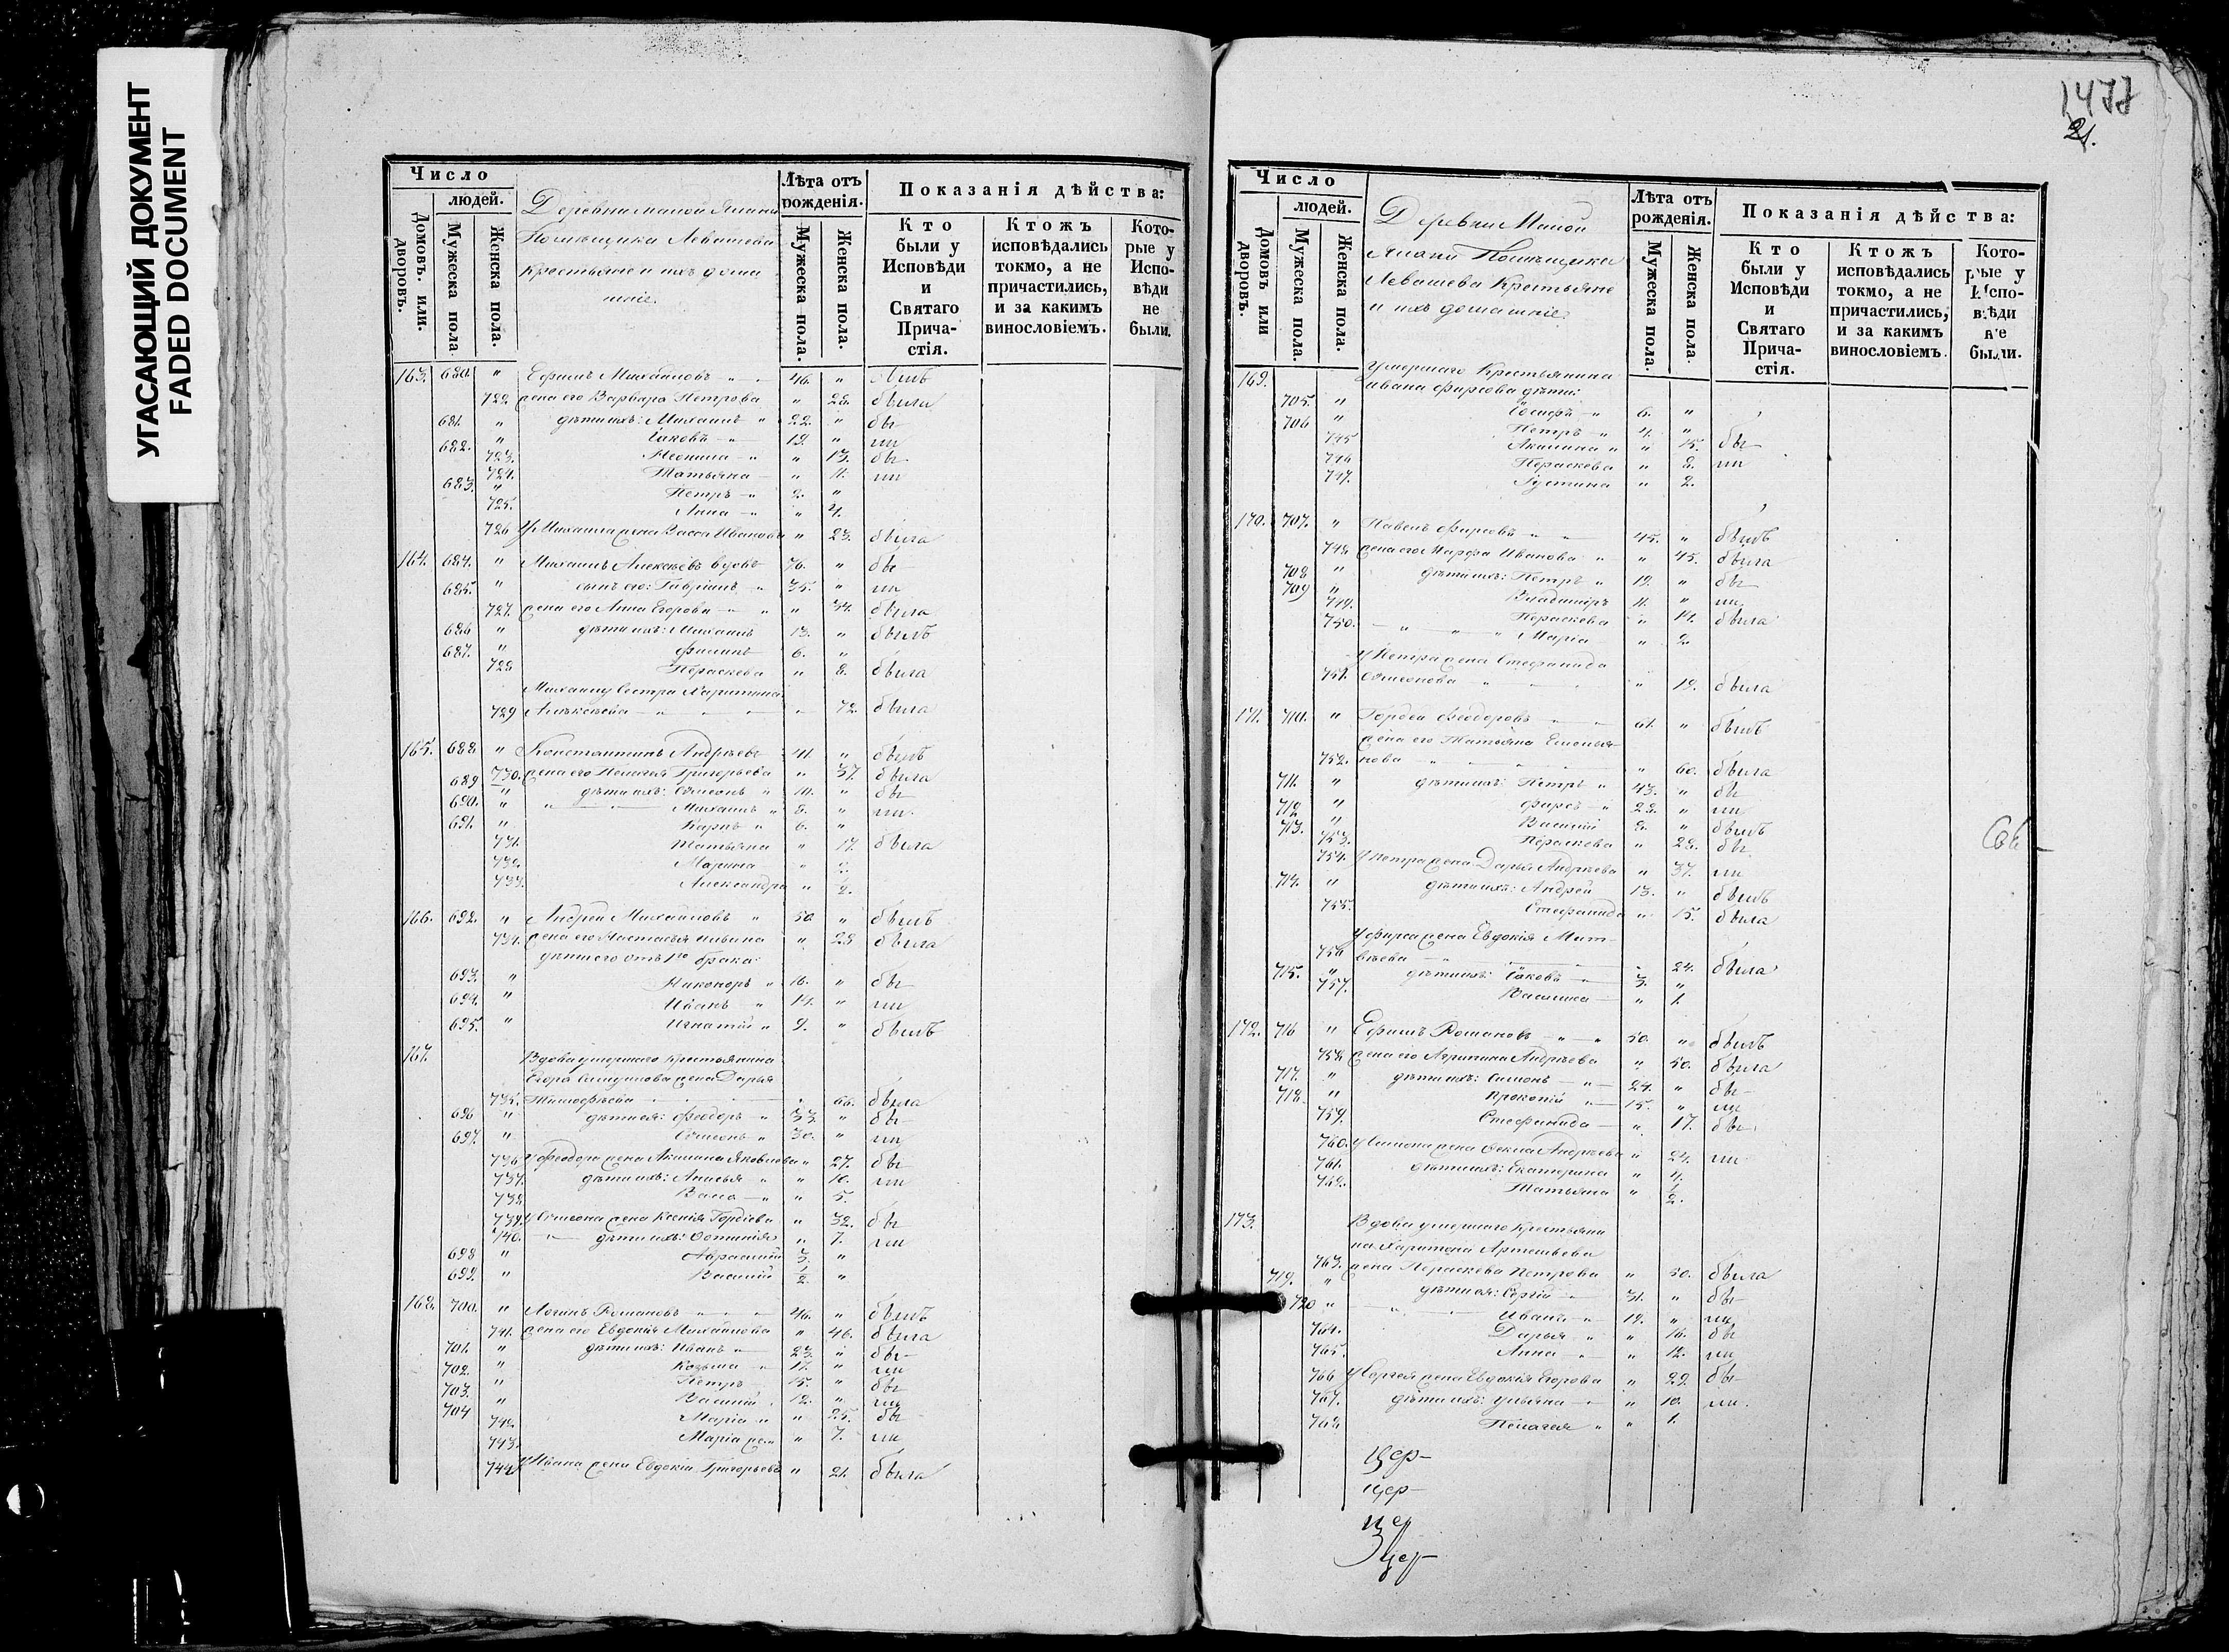 УГАСАЮЩИЙ ДОКУМЕНТ
FADED DOCUMENT
Число
людей.
Домовъ. или. дворовъ.
Мужеска пола
Женска пола.
Деревни малой
Помѣщика Левашева
Крестьяне и ихъ дома
шніе.
Лѣта отъ рожденія.
Мужеска пола.
Женска пола.
Показанія дѣйства:
Кто были у Исповѣди и Святаго Прича-стія.
Ктожъ исповѣдались токмо, а не причастились, и за какимъ винословіемъ.
Кото-рые у Испо-вѣди не были.
163. 680. " Ефимъ Михайловъ 46. "
722 жена его Варвара Петрова " 28. была
681. " дѣти ихъ: Михаилъ " 22. " бы
682. " Іаковъ 19. " ли
723. Неонила " 13. бы
724. Татьяна " 11. ли
683. " Петръ 2. "
725. Анна " 4.
726 У Михаила жена Васса Иванова " 23. была
164. 684. " Михаилъ Алексѣевъ вдовъ 76. " бы
685. " сынъ его: Гавріилъ 35. " ли
727. жена его Анна Егорова " 34. была
686 " дѣти ихъ: Михаилъ 13. " былъ
687. " Филипъ 6. "
728 Пераскева " 8. была
Михаилу Сестра Харитина
729 Алексѣева 72. была
165. 688. " Константинъ Андрѣевъ 41. " былъ
730. жена его Пелагея Григорьева " 37. была
689 " дѣти ихъ: Сѵмеонъ " 10. " бы
690. " Михаилъ " 8. " ли.
691. " Карпъ " 6. "
731. Татьяна " 17. была
732. Марина " 2.
733. Александра " 2.
166. 692. " Андрей Михайловъ " 50 " былъ
734. жена его Настасья Ильина " 28 была
дѣти его отъ 1го брака:
693. " Никоноръ " 16. " бы
694. " Иванъ " 14. " ли
695. " Игнатій " 9. " былъ
167. Вдова умершаго крестьянина
Егора жена Дарья
735. Тимофѣева 66. была
696 " дѣти ея: Феодоръ " 33. " бы
697. " Сѵмеонъ " 30. " ли
736 У Феодора жена Акилина Яковлева " 27. бы
737. дѣти ихъ: Анисья " " 10. ли
738. Васса " 5.
739. У Сѵмеона жена Ксенія Гордіева " 32. бы
740. дѣти ихъ: " 7. ли
698 "
699. " Василій 1/2. "
168. 700. " Логинъ Романовъ 46. " былъ
741. жена его Евдокія Михайлова " 46. была
701. " дѣти ихъ: Иванъ 23. " бы
702. " Козьма 17. " ли
703. " Петръ 15. " бы
704 " Василій 12. " ли
742. Марія " 25. бы
743. Марія " 7. ли
744 У Ивана жена Евдокія Григорьева " 21. была
1477
21.
Число
людей.
Домовъ или дворовъ.
Мужеска пола.
Женска пола.
Деревни Малой
Помѣщика
Левашева Крестьяне
и ихъ домашніе.
Лѣта отъ рожденія.
Мужеска пола.
Женска пола.
Показанія дѣйства:
Кто были у Исповѣди и Святаго Прича-стія.
Ктожъ исповѣдались токмо, а не причастились, и за какимъ винословіемъ.
Кото-рые у Испо-вѣди не были.
169. Умершаго Крестьянина
Ивана Фирсова дѣти:
705. " Іосифъ 6. "
706 " Петръ 4. "
745 Акилина " " 15. бы
746 Пераскева " 8. ли
747. Іустина " 2.
170. 707. " Павелъ Фирсовъ 45. " былъ
748 жена его Марфа Иванова " 45. была
708 " дѣти ихъ: Петръ " 19. " бы
709 " Владиміръ 11. " ли
749. Пераскева " 14. была
750. Марія " 2.
У Петра жена Стефанида
751. Сѵмеонова " 19. была
171. 710. " Гордей Феодоровъ 61. " былъ
жена его Татьяна Емелья
752. нова " 60. была
711. " дѣти ихъ: Петръ " 43. " бы
712 " Фирсъ 28. " ли
713. " Василій 8. " былъ
753. Пераскева " 28. бы
754. У Петра жена Дарья Андрѣева " 37. ли
714. " дѣти ихъ: Андрей 13. " былъ
755. Стефанида " 15. была
У Фирса жена Евдокія Мат-
756 вѣева 24. была
715. " дѣти ихъ: Іаковъ 3. "
757. Василиса " 1.
172. 716 " Ефимъ Романовъ 50. " былъ
758. жена его Агрипина Андрѣева " 50. была
717. " дѣти ихъ: Симонъ 24. " бы
718. " Прокопій 15. " ли
759. Стефанида " 17. бы
760. У Симона жена Фекла Андрѣева " 24. ли
761. дѣти ихъ: Екатерина " 4.
762. Татьяна " 1/2.
173. Вдова умершаго Крестьяни
на Харитона Артемьева
763. жена Пераскева Петрова " 50. была
719. " дѣти ея: Сергій 31. " бы
720 " Иванъ 19. " ли
764. Дарья " 16. бы
765. Анна " 12. ли
766 У Сергея жена Евдокія Егорова " 29. бы
767. дѣти ихъ: Ульяна " 10. ли.
768 Пелагея " 1.
цер-
цер-